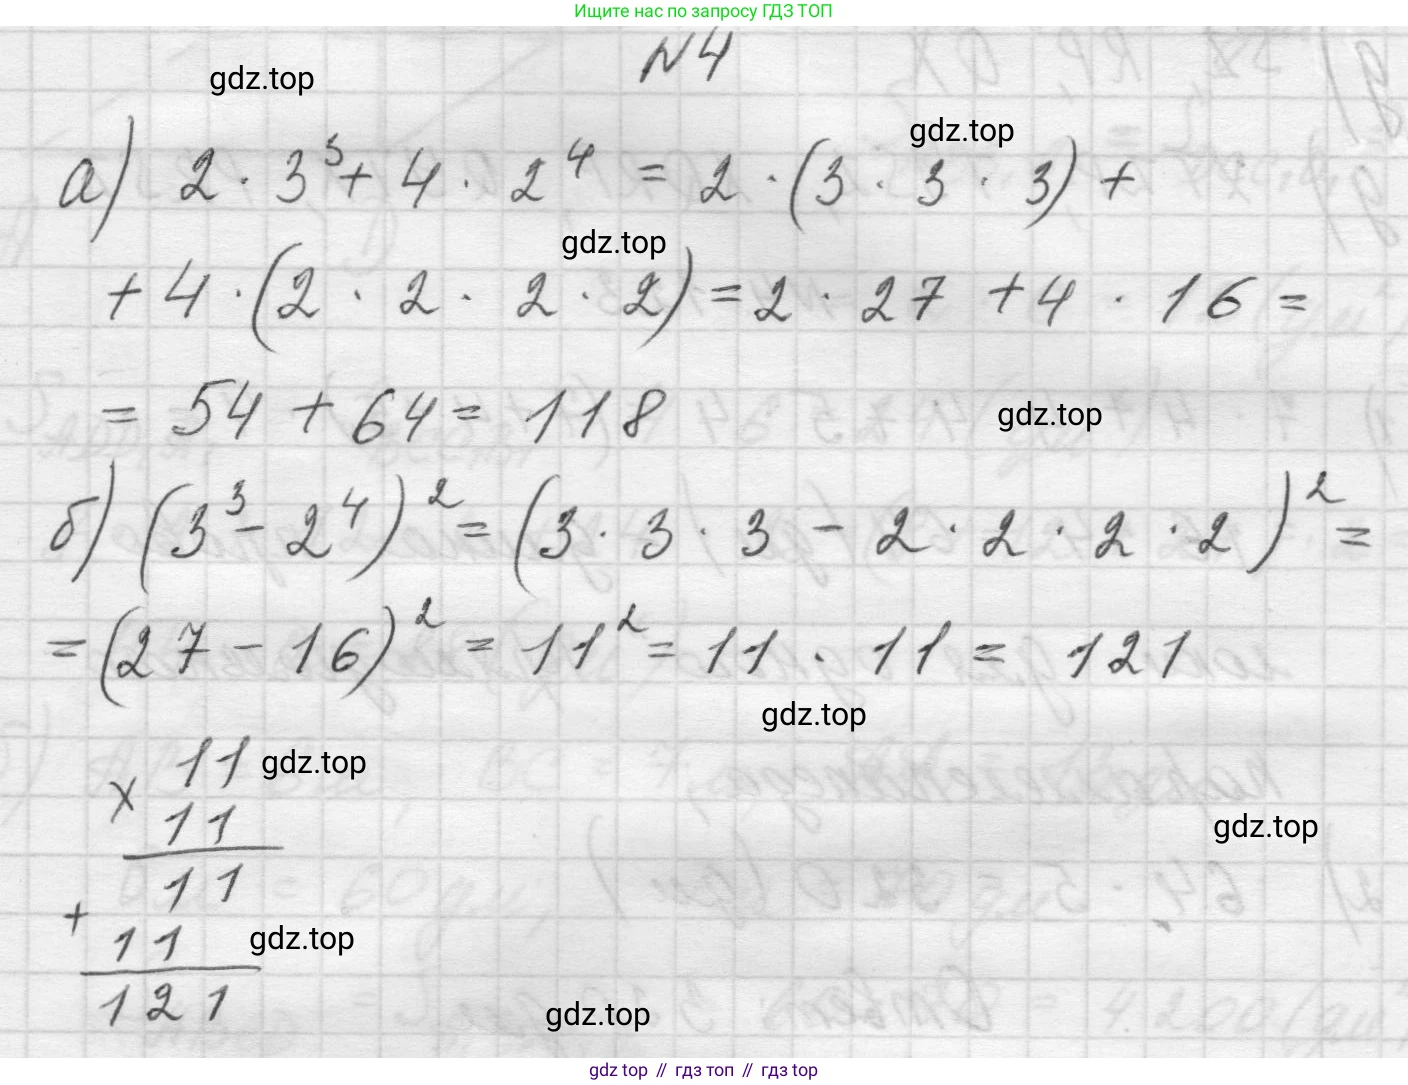 Ищите нас по запросу ГДЗ ТОП
N4
gdz.top
gdz.top
а) 2 · 3³ + 4 · 2⁴ = 2 · (3 · 3 · 3) +
gdz.top
+ 4 · (2 · 2 · 2 · 2) = 2 · 27 + 4 · 16 =
= 54 + 64 = 118
gdz.top
б) (3³ - 2⁴)² = (3 · 3 · 3 - 2 · 2 · 2 · 2)² =
= (27 - 16)² = 11² = 11 · 11 = 121
gdz.top
11 gdz.top
× 11
gdz.top
11
+ 11 gdz.top
121
gdz.top
gdz top // гдз топ // гдз top